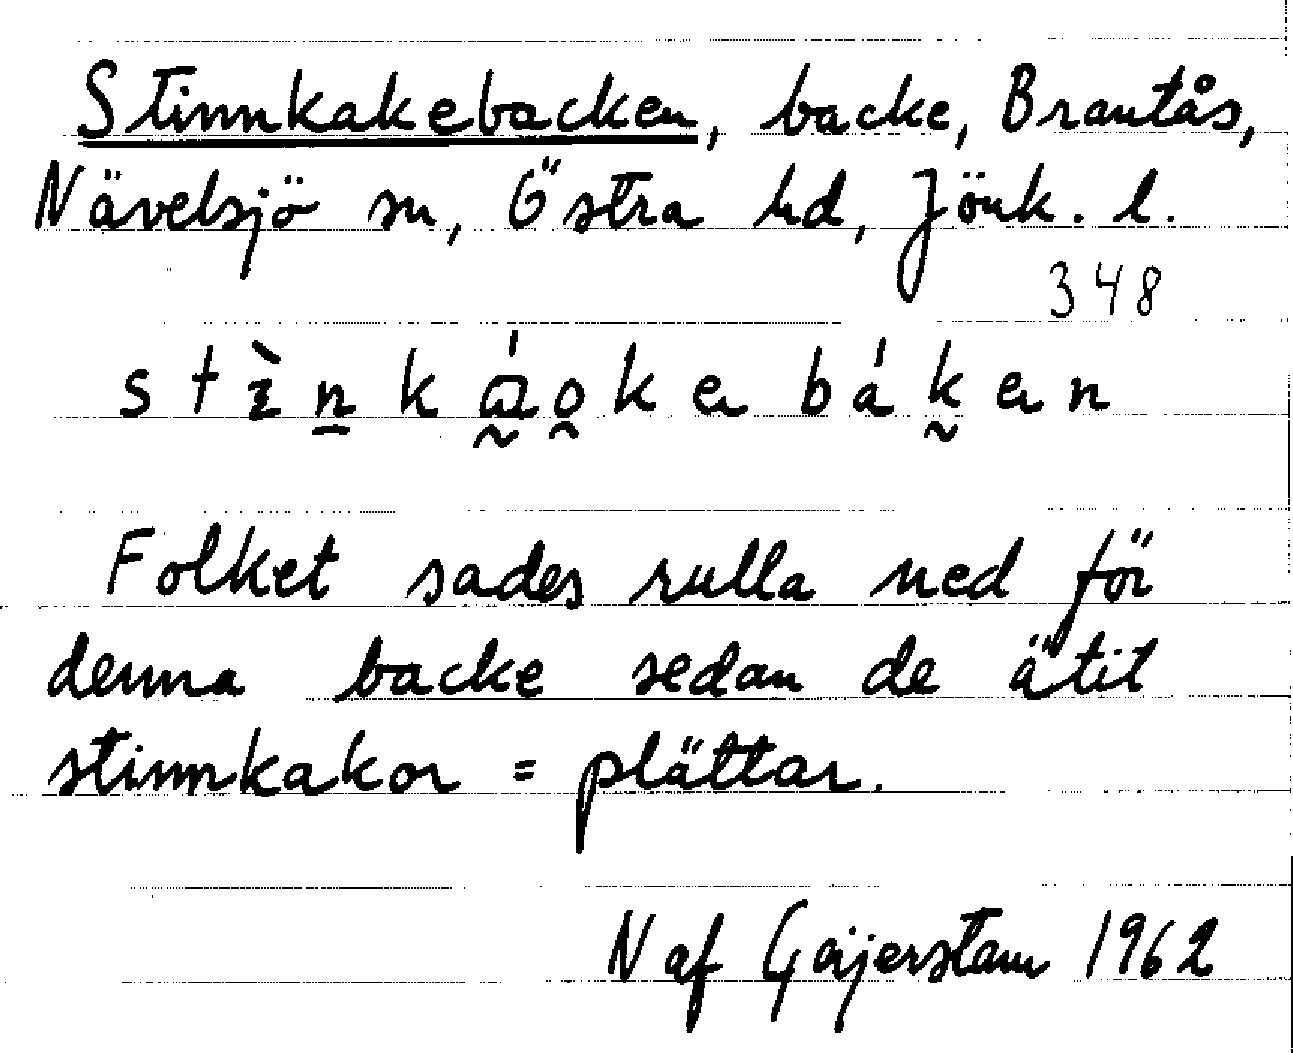 Stinnkakebacken, backe, Brantås,
Nävelsjö sn, Östra hd, Jönk. l.
348
Folket sades rulla ned för
denna backe sedan de ätit
stinnkakor = plättar.
N af Geijerstam 1962